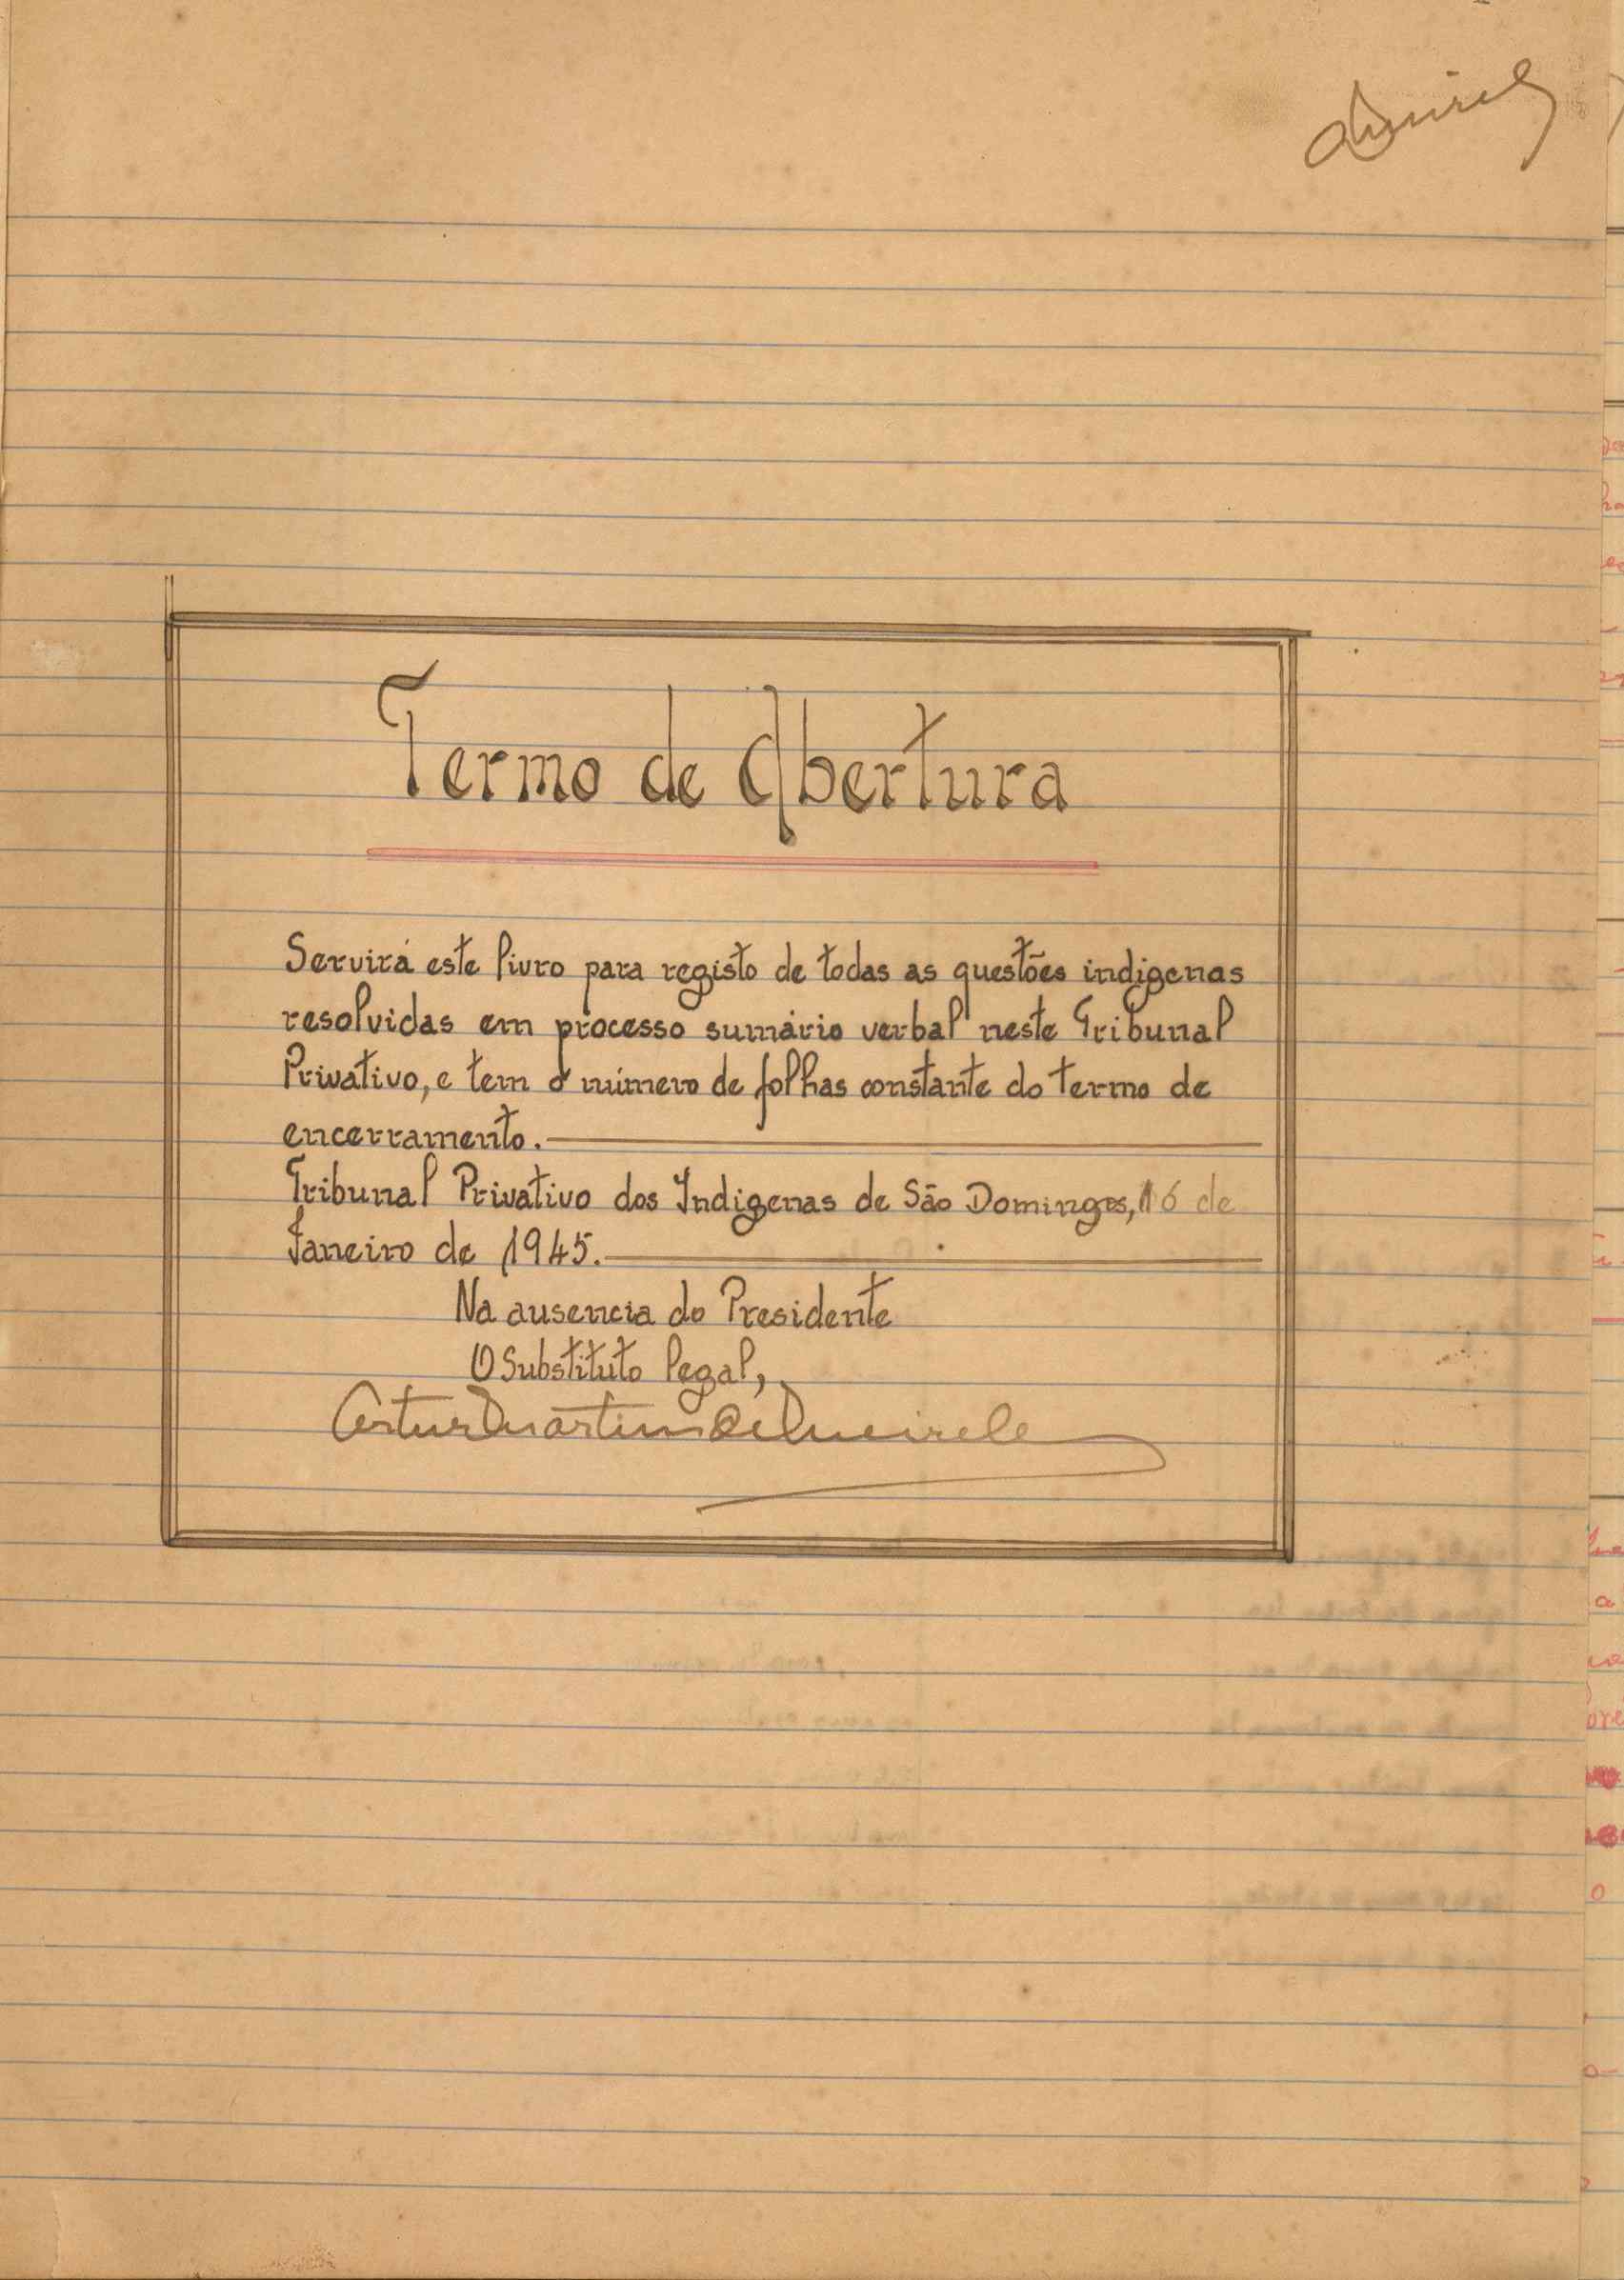 Termo de Abertura
Servirá este livro para registo de todas as questões indigenas
resolvidas em processo sumário verbal neste Tribunal
Privativo, e tem o número de folhas constante do termo de
encerramento.
Tribunal Privativo dos Indigenas de São Domingos, 16 de
Janeiro de 1945.
Na ausencia do Presidente
O Substituto legal,
Artur Martins de Meireles